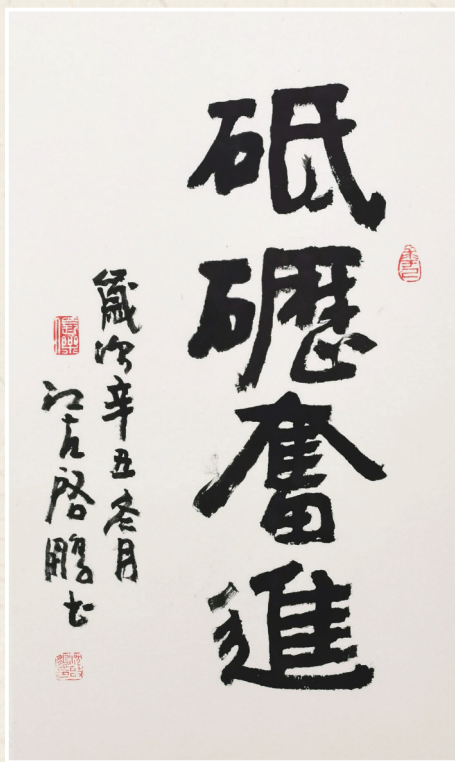 砥礪奮進
歲次辛丑冬月
江右啓鵬书